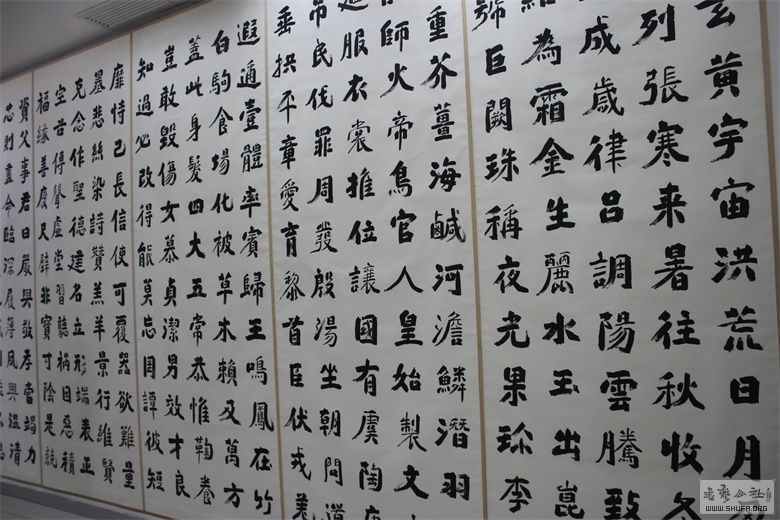 玄黃宇宙洪荒日月
列張寒来暑往秋收冬
成歲律吕調陽雲騰致
結為霜金生麗水玉出崑
號巨闕珠稱夜光果珍李
重芥薑海鹹河澹鱗潛羽
師火帝鳥官人皇始製文
服衣裳推位讓國有虞陶
吊民伐罪周發殷湯坐朝問道
垂拱平章愛育黎首臣伏戎羌
遐邇壹體率賓歸王鳴鳳在竹
白駒食場化被草木賴及萬方
蓋此身髮四大五常恭惟鞠養
豈敢毀傷女慕貞潔男效才良
知過必改得能莫忘罔譚彼短
靡恃己長信使可覆器欲難量
墨悲絲染詩贊羔羊景行維賢
克念作聖德建名立形端表正
空谷傳聲虛堂習聽禍因惡積
福緣善慶尺璧非寶寸陰是競
資父事君曰嚴與敬孝當竭力
忠則盡命臨深履薄夙興溫清
書法公社
WWW.SHUFA.ORG